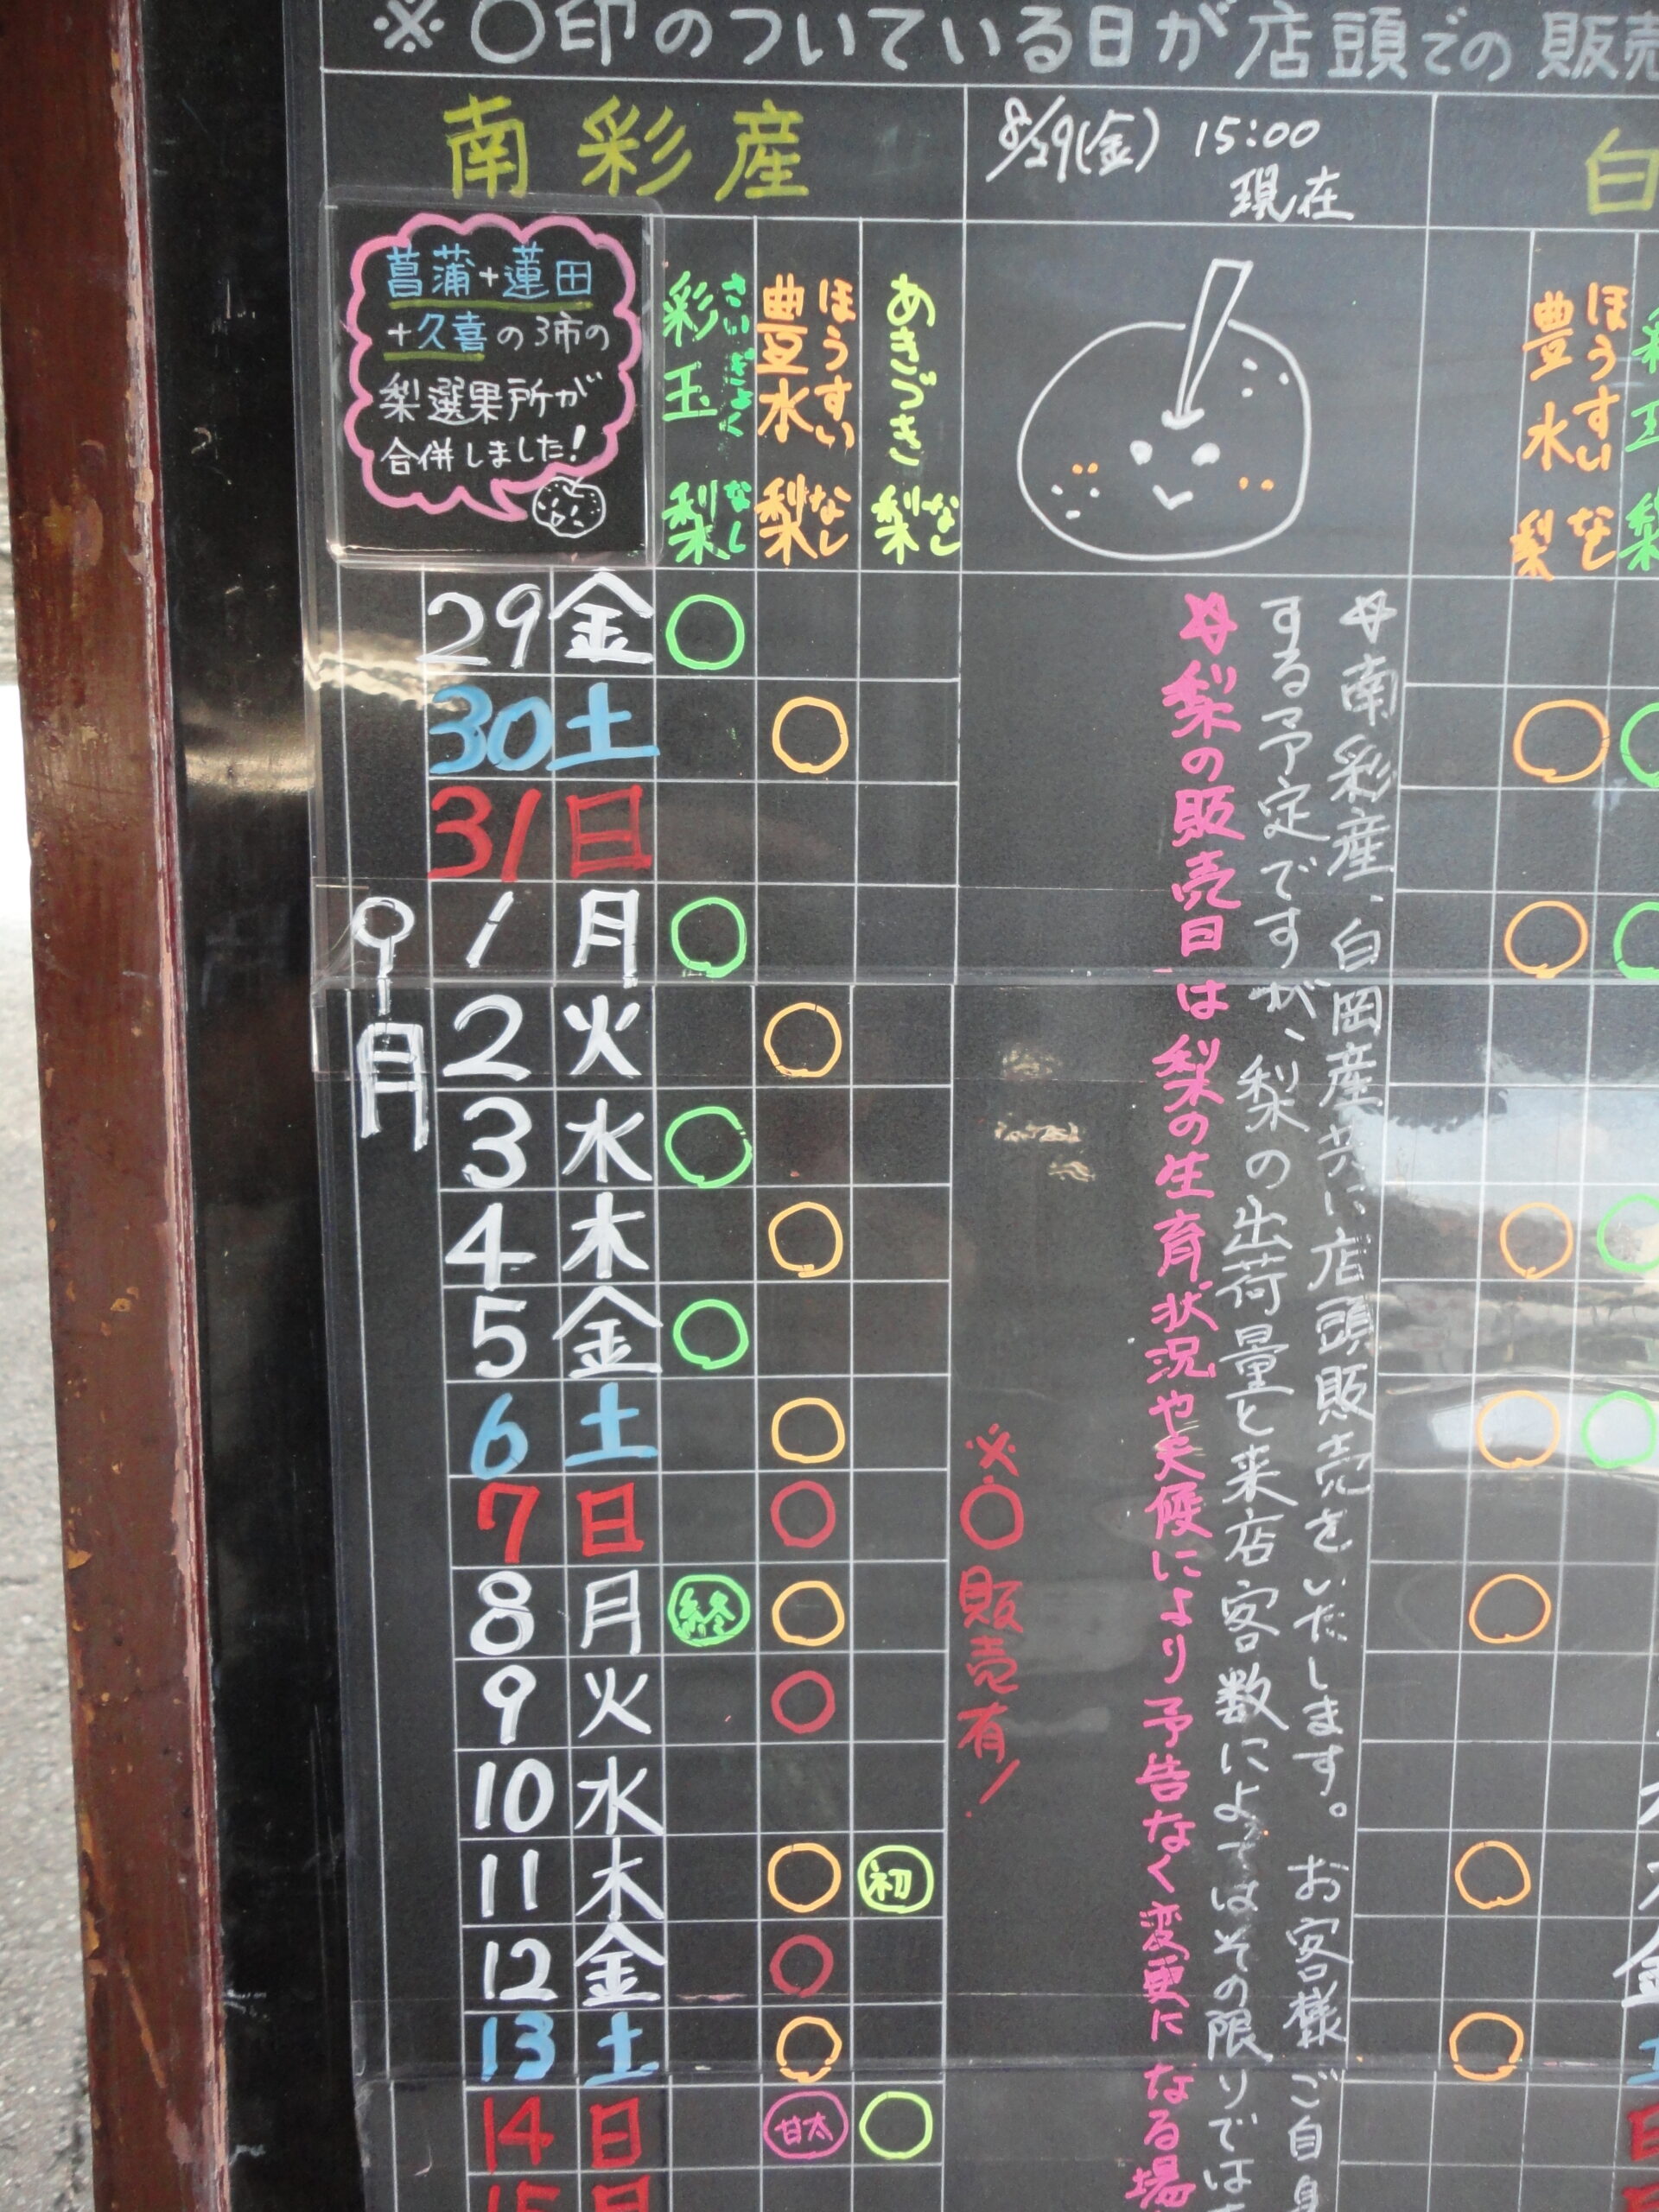 ※〇印のついている日が店頭での販売
南彩産
8/29(金) 15:00
現在
白
菖蒲+蓮田
+久喜の3市の
梨選果所が
合併しました!
彩玉 さいぎょく
梨 なし
豊水 ほうすい
梨 なし
あきづき
梨 なし
豊水 ほうすい
梨 なし
29 金 〇
30 土 〇
31 日
9月
1 月 〇
2 火 〇
3 水 〇
4 木 〇
5 金 〇
6 土 〇
7 日 〇
8 月 終 〇
9 火 〇
10 水
11 木 〇 初
12 金 〇
13 土 〇
14 日 甘太 〇
☆南彩産、白岡産共に店頭販売をいたします。お客様ご自身
する予定ですが、梨の出荷量と来店客数によってはその限りでは
☆梨の販売日は梨の生育状況や天候により予告なく変更になる場
※〇販売有!